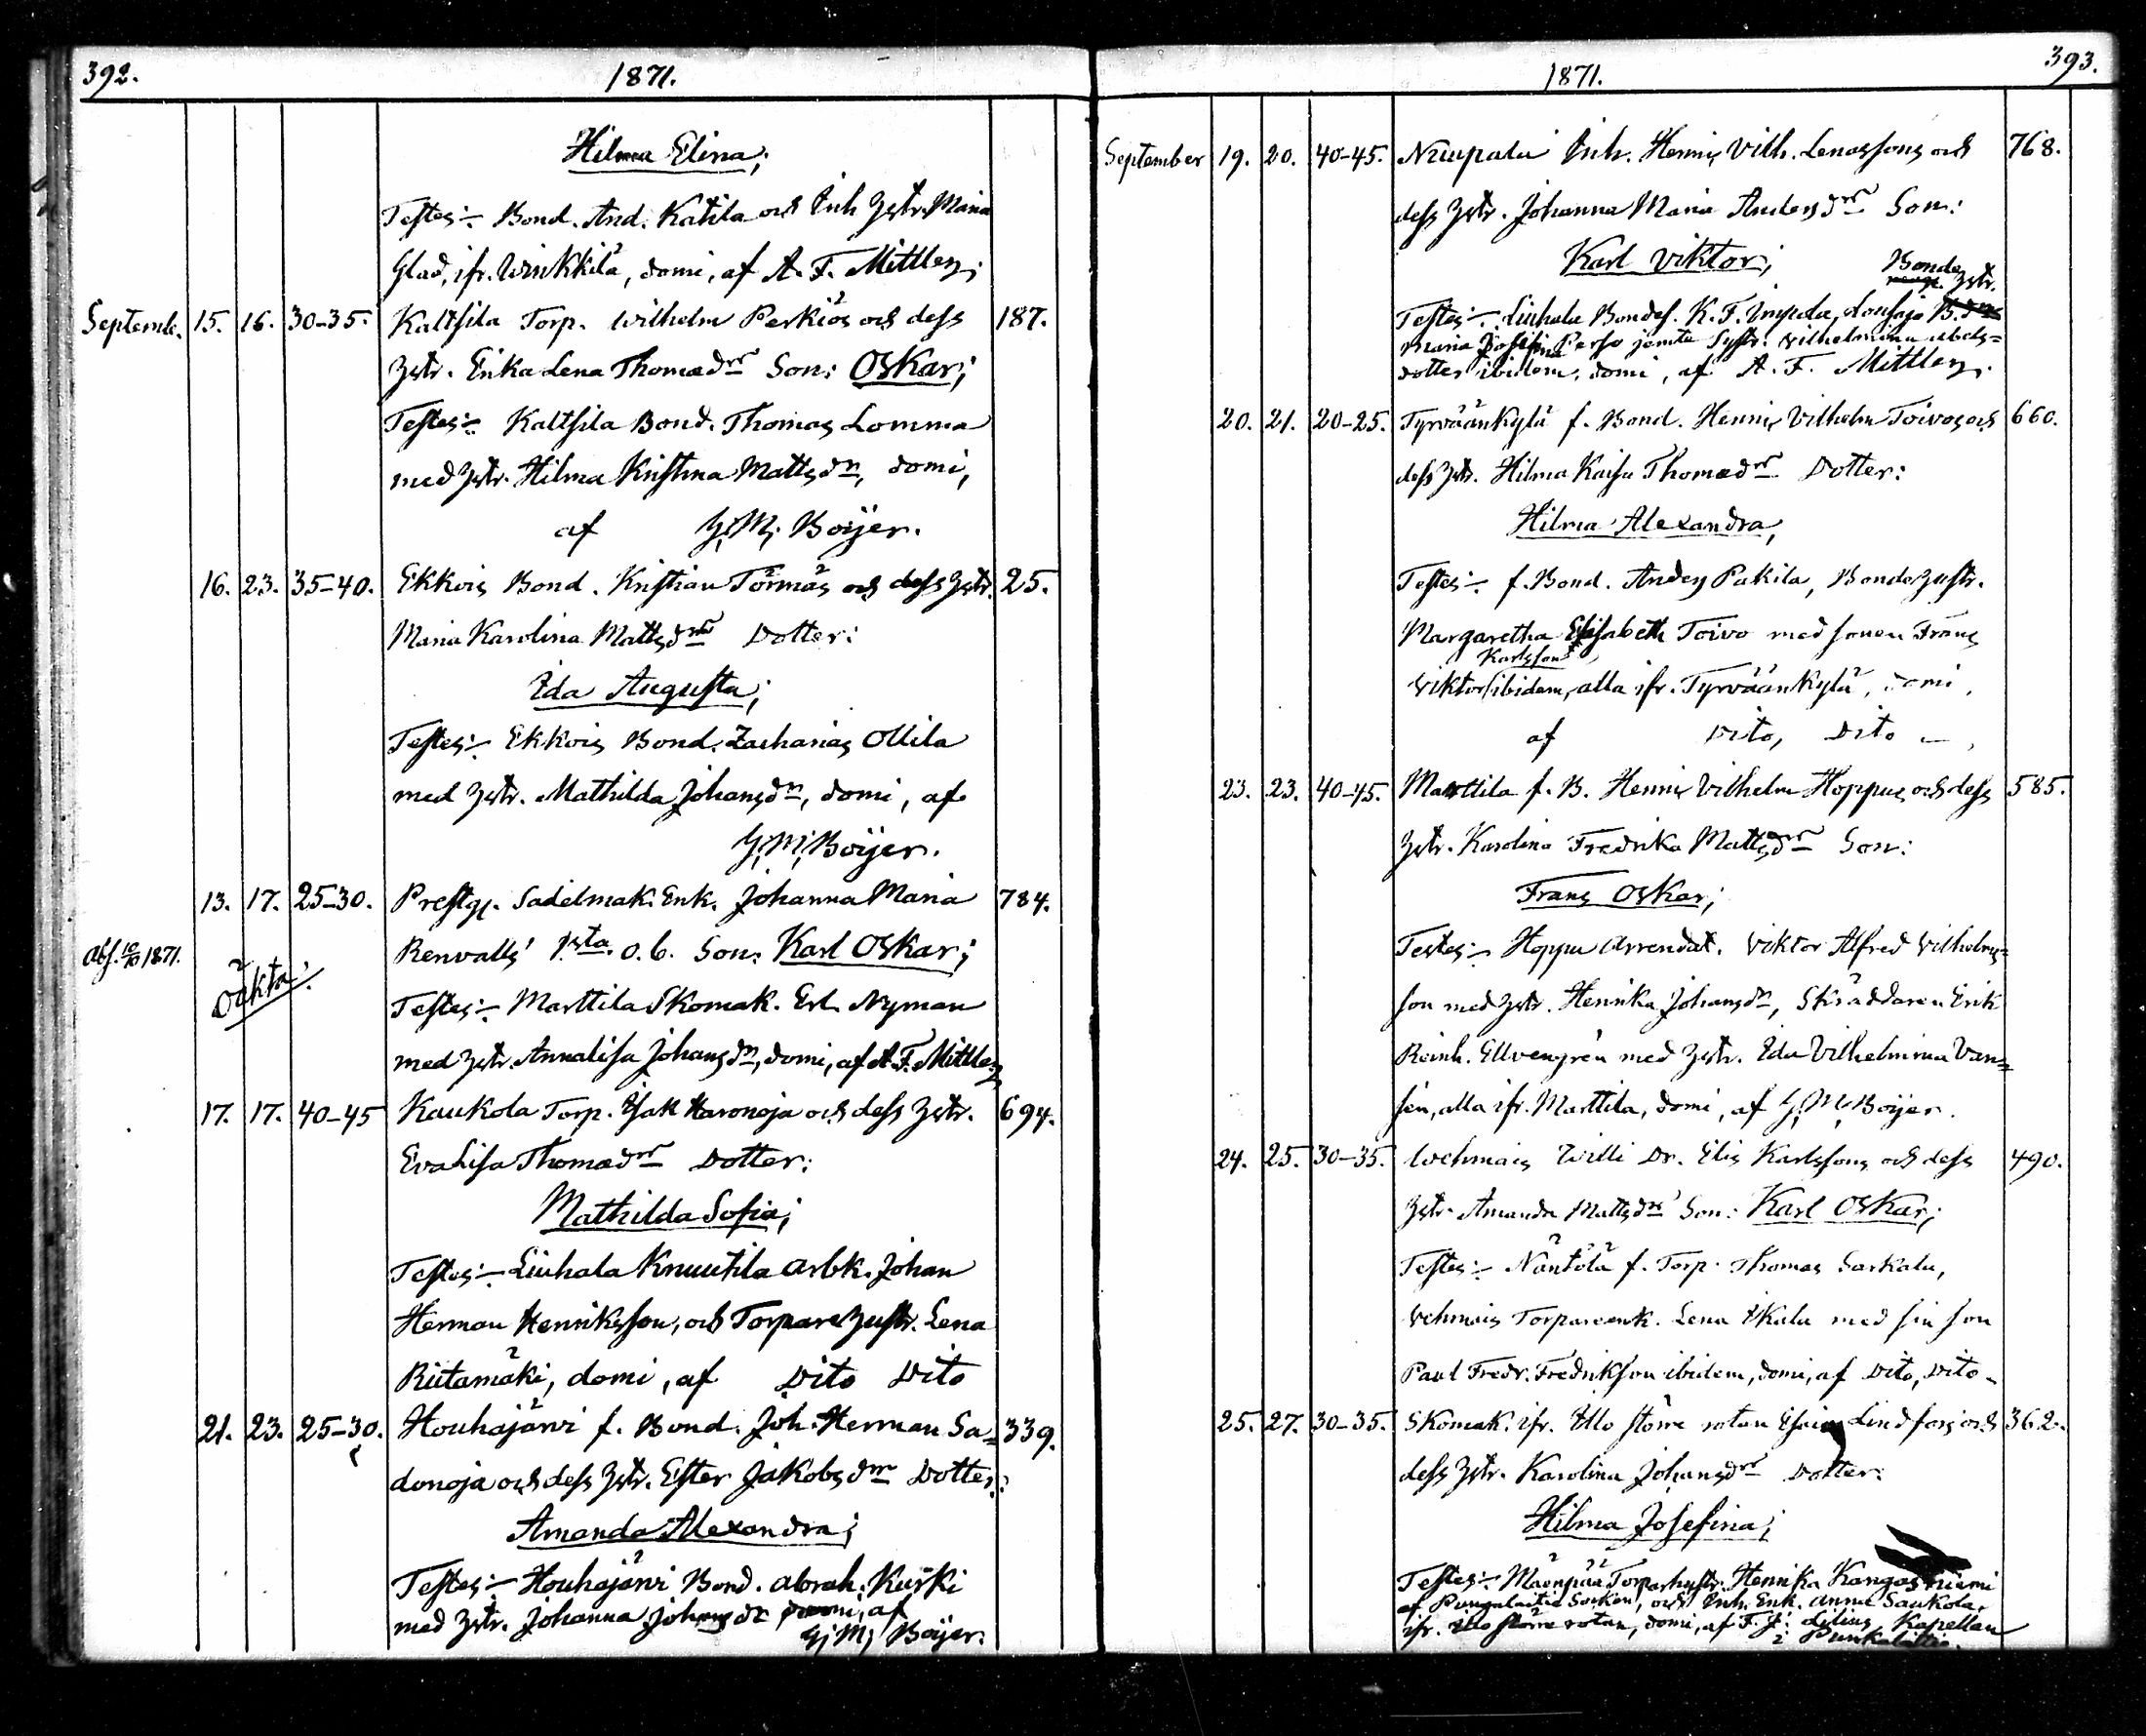 392.
1871.
Hilma Elina;
Testes:- Bond. And. Katila och Inh. Hstr. Maria
Glad, ifr. Winkkilä, domi, af A. F. Mittler;
Septemb. 15. 16. 30-35. Kaltsila Torp. Wilhelm Perkiös och dess 187.
Hstr. Erika Lena Thomædrs Son: Oskar;
Testes:- Kaltsila Bond. Thomas Lomma
med Hstr. Hilma Kristina Mattsdr, domi,
af G. M. Boijer.
16. 23. 35-40. Ekkois Bond. Kristian Törmäs och dess Hstr. 25.
Maria Karolina Mattsdrs Dotter:
Ida Augusta;
Testes:- Ekkois Bond. Zacharias Ollila
med Hstr. Mathilda Johansdr, domi, af
G. M. Boijer.
13. 17. 25-30. Prestg. Sadelmak. Enk. Johanna Maria 784.
Abs. 10/10 1871. Renvalls 1sta o. b. Son: Karl Oskar;
oäkta.
Testes:- Marttila Skomak. Erl. Nyman
med Hstr. Annalisa Johansdr, domi, af A. F. Mittler
17. 17. 40-45 Kaukola Torp. Isak Haronoja och dess Hstr. 694.
Eva Lisa Thomædrs Dotter:
Mathilda Sofia;
Testes:- Liuhala Knuutila Arbk. Johan
Herman Henriksson, och Torpare Hustr. Lena
Riitamäki, domi, af Dito Dito
21. 23. 25-30. Houhajärvi f. Bond. Joh. Herman Sa= 339.
donoja och dess Hstr. Ester Jakobsdrs Dotter:
Amanda Alexandra;
Testes:- Houhajärvi Bond. Abrah. Kurki
med Hstr. Johanna Johansdr domi, af
G. M. Boijer.
393.
1871.
September 19. 20. 40-45. Nuupala Inh. Henric Vilh. Lenassons och 768.
dess Hstr. Johanna Maria Andersdrs Son:
Karl Viktor;
Bonde
Hstr.
Testes:- Liuhala Bondes. K. F.
Maria Josefina Perho jämte Syst. Vilhelmina
dotter ibidem, domi, af A. F. Mittler.
20. 21. 20-25. Tyrväänkylä f. Bond. Henric Vilhelm Toivos och 660.
dess Hstr. Hilma Kaisa Thomædrs Dotter:
Hilma Alexandra;
Testes:- f. Bond. Anders Pakila, Bonde Hustr.
Margaretha Elisabeth Toivo med sonen Frans
Karlsson
Viktor ibidem, alla ifr. Tyrväänkylä, domi,
af Dito, Dito -,
23. 23. 40-45. Marttila f. B. Henric Vilhelm Hoppus och dess 585.
Hstr. Karolina Fredrika Mattsdrs Son:
Frans Oskar;
Testes:- Hoppu Arrendat. Viktor Alfred Vilhelms=
son med Hstr. Henrika Johansdr, Skräddaren Erik
Reinh. Ellvengrén med Hstr. Ida Vilhelmina Van=
sén, alla ifr. Marttila, domi, af G. M. Boijer.
24. 25. 30-35. Wehmais Willi Dr. Elis Karlssons och dess 490.
Hstr. Amanda Mattsdrs Son: Karl Oskar;
Testes:- Näntölä f. Torp. Thomas Sarkala,
Vehmais Torpareenk. Lena Ikala med sin son
Paul Fredr. Fredriksson ibidem, domi, af Dito, Dito -
25. 27. 30-35. Skomak. ifr. Illo större rotan Esaias Lindfors och 362.
dess Hstr. Karolina Johansdrs Dotter:
Hilma Josefina;
Testes:- Mäenpää Torparhustr. Henrika Kangasniemi
af Pungalaitio Socken, och Inh. Enk. Anna Saukola,
ifr. Illo större rotan, domi, af F. J. Lilius, Kapellan
i Punkalaitio.